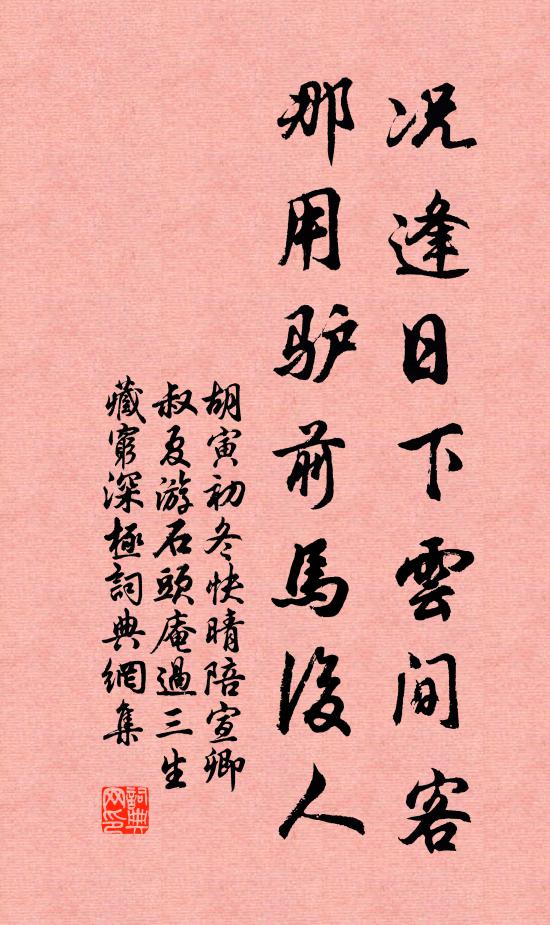 况逢日下雲间客
那用驴前馬後人
胡寅初冬快晴陪宣卿
叔夏游石頭庵過三生
藏窮深極詞典網集
詞典网印